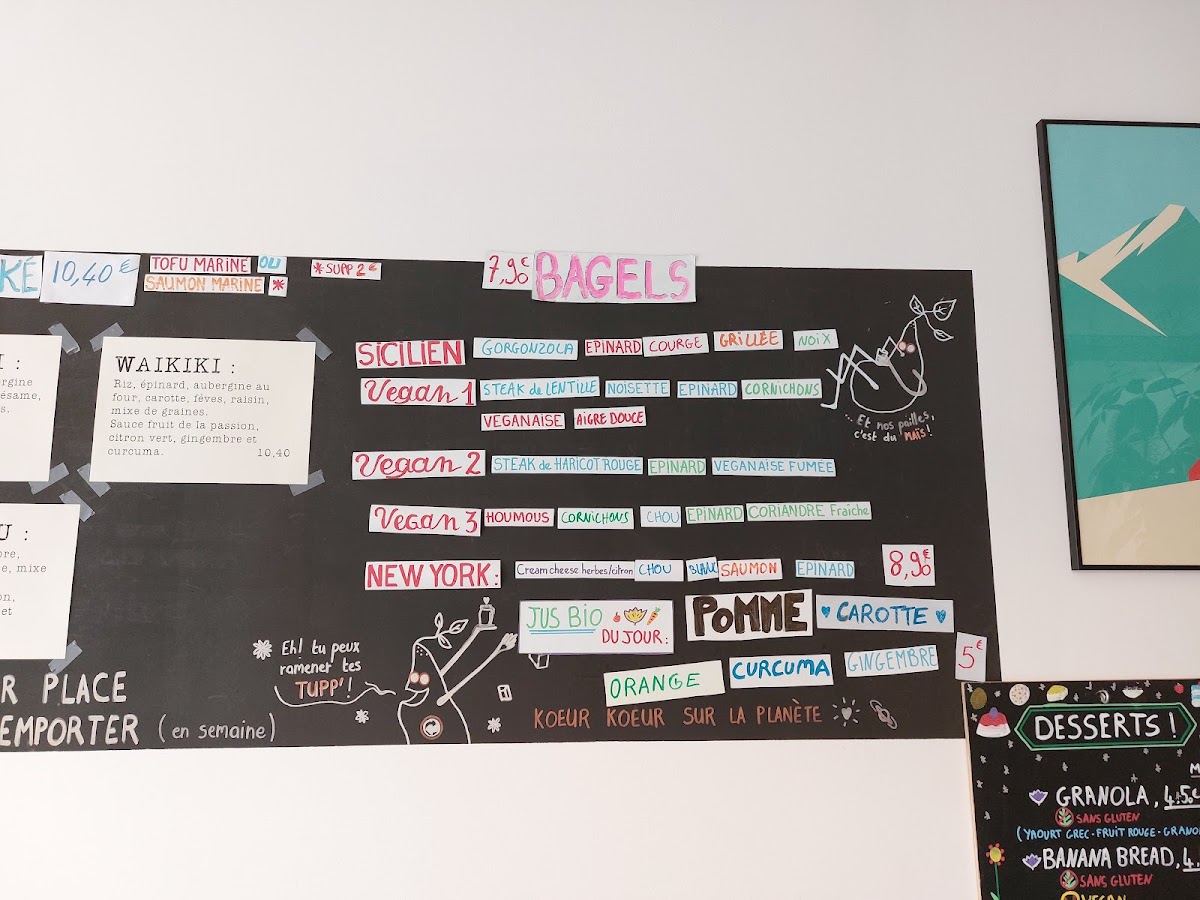 KÉ 10,40 €
TOFU MARINÉ OU
SAUMON MARINÉ *
* SUPP 2 €
WAIKIKI :
Riz, épinard, aubergine au
four, carotte, féves, raisin,
mixe de graines.
Sauce fruit de la passion,
citron vert, gingembre et
curcuma. 10,40
mixe
et
R PLACE
EMPORTER (en semaine)
7,90€ BAGELS
SICILIEN GORGONZOLA EPINARD COURGE GRILLÉE NOIX
Vegan 1 STEAK de LENTILLE NOISETTE EPINARD CORNICHONS
VEGANAISE AIGRE DOUCE
Vegan 2 STEAK de HARICOT ROUGE EPINARD VEGANAISE FUMÉE
Vegan 3 HOUMOUS CORNICHONS CHOU EPINARD CORIANDRE Fraîche
NEW YORK: Cream cheese herbes/citron CHOU BLANC SAUMON EPINARD 8,90€
... Et nos pailles,
c'est du MAÏS !
JUS BIO
DU JOUR:
POMME CAROTTE
ORANGE CURCUMA GINGEMBRE 5€
* Eh! tu peux
ramener tes
TUPP'!
KOEUR KOEUR SUR LA PLANÈTE
DESSERTS !
GRANOLA, 4.50€
SANS GLUTEN
(YAOURT GREC - FRUIT ROUGE - GRANO
BANANA BREAD, 4.
SANS GLUTEN
VEGAN